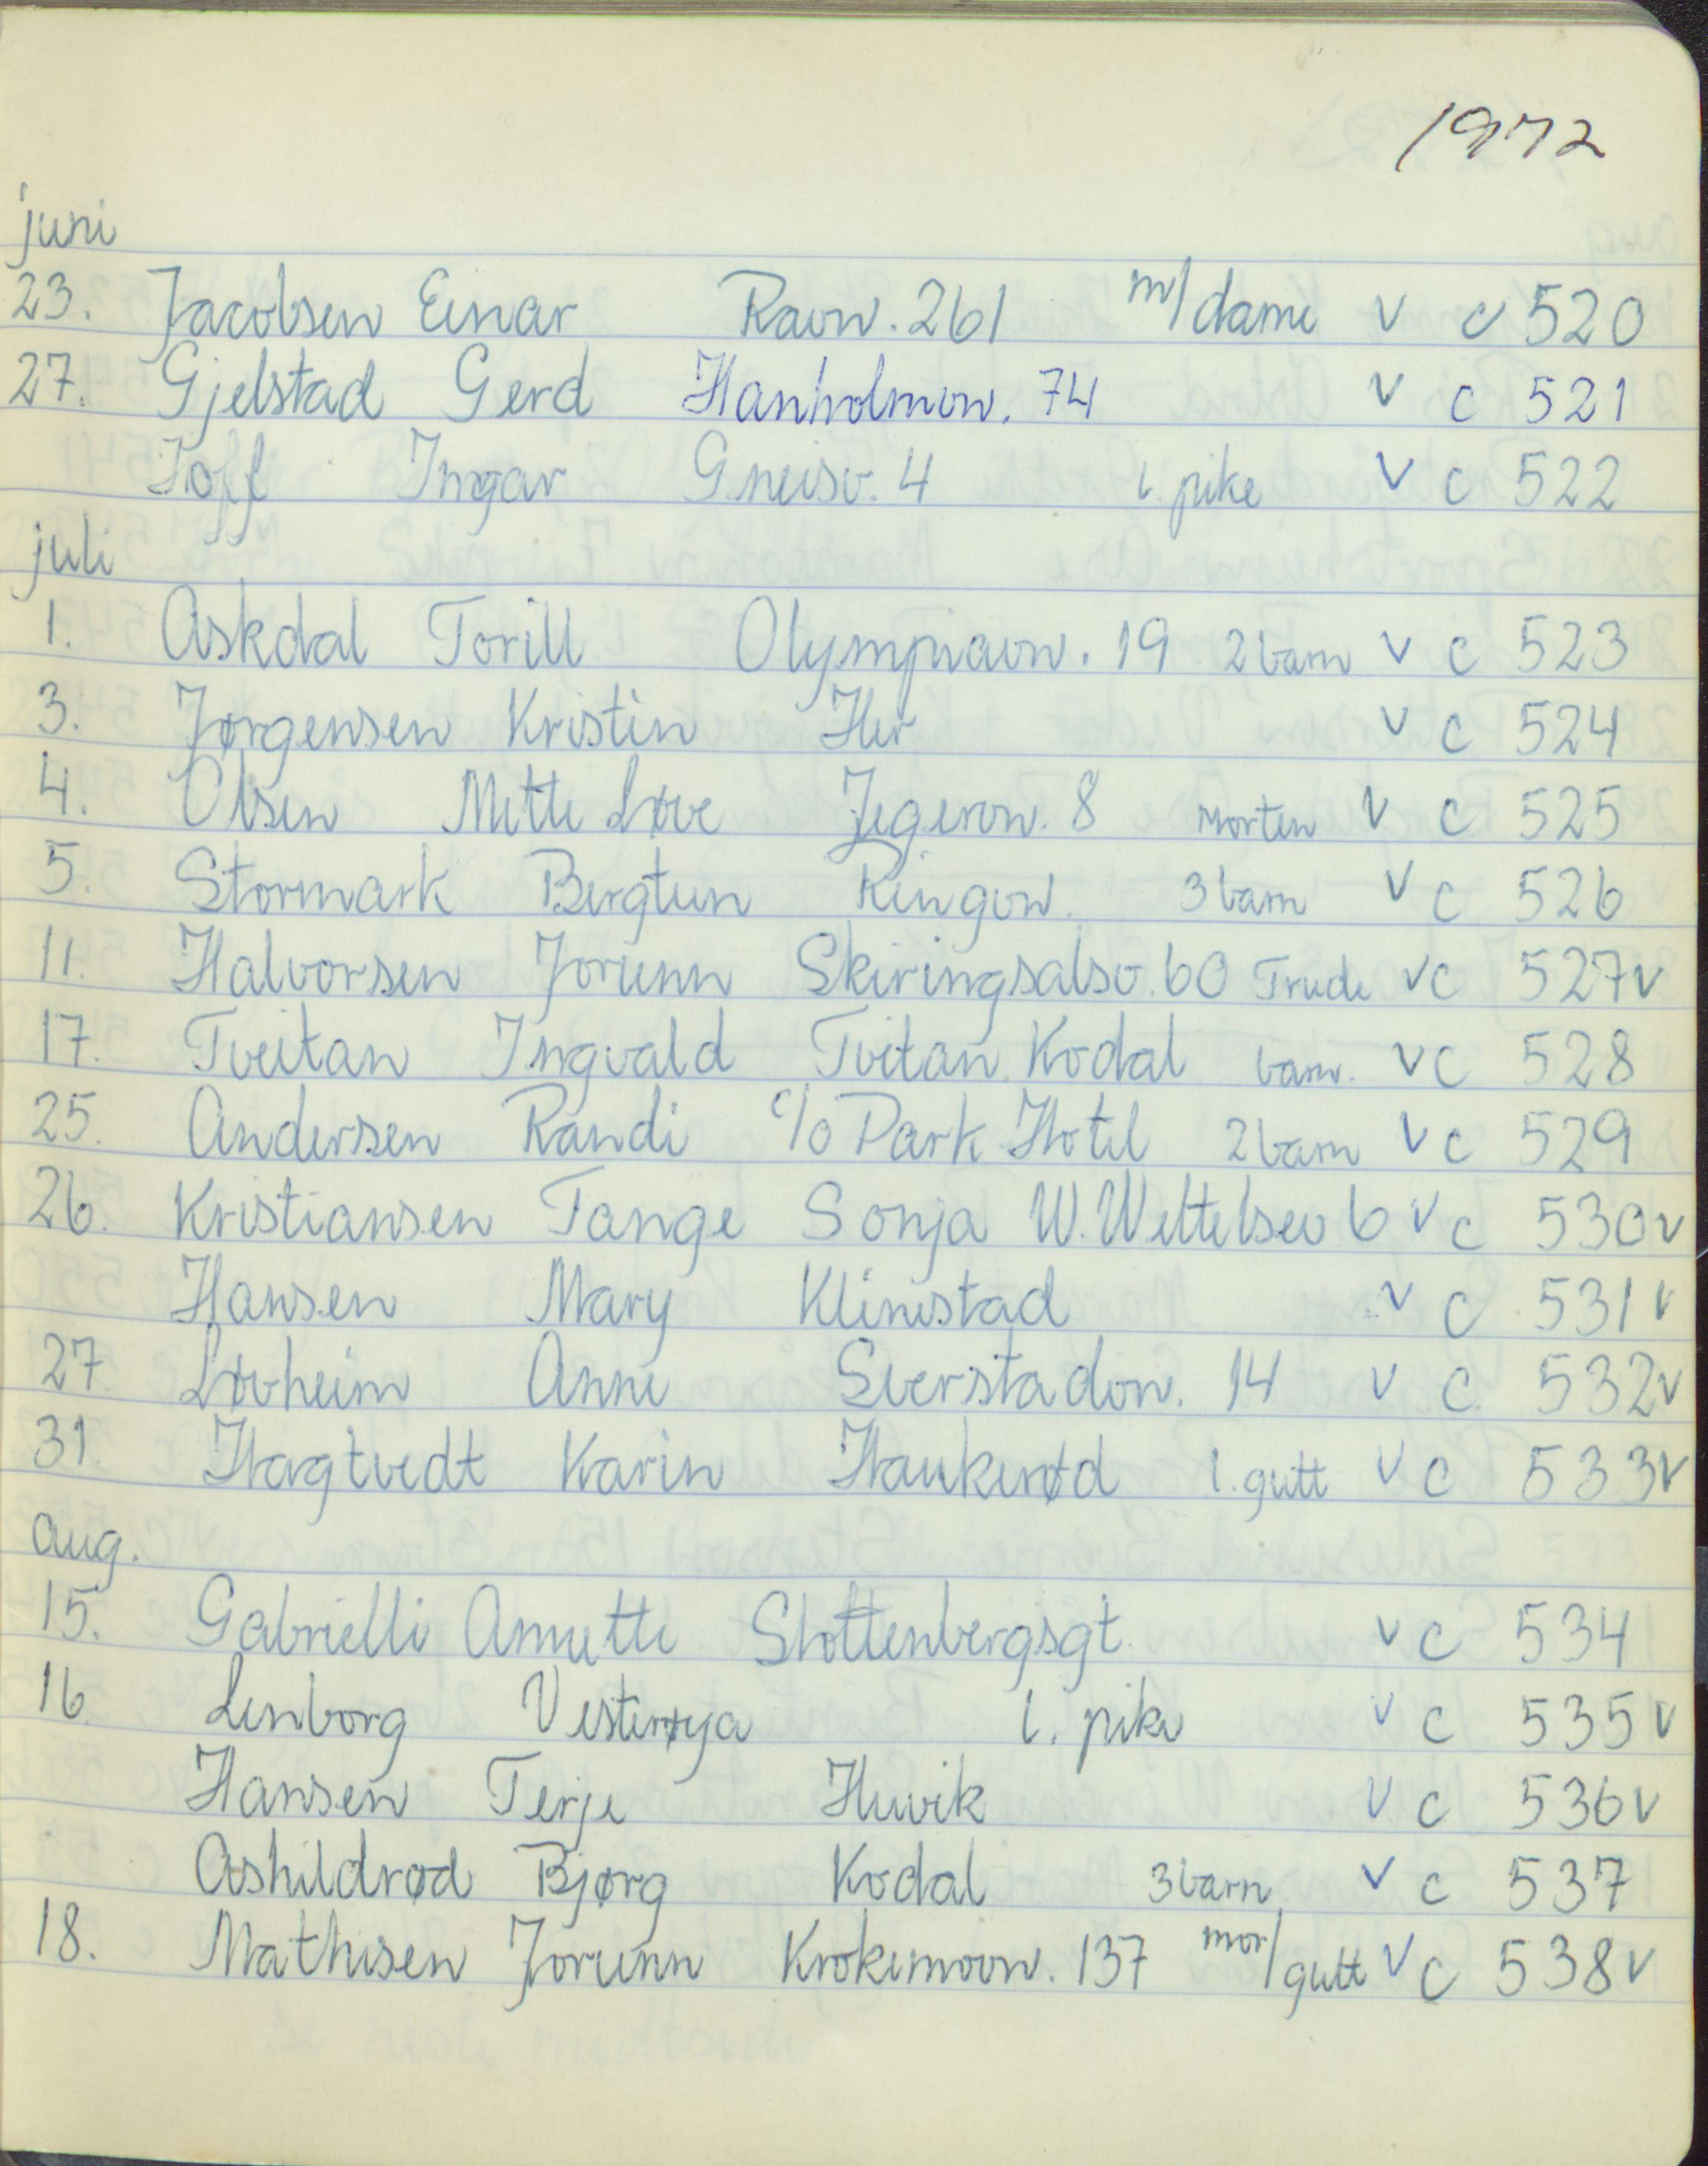 1972
juni
23. Jacobsen Einar Ravn. 261 m/dame v c 520
27. Gjelstad Gerd Hanholmvn. 74 v c 521
Hoff Ingar Gneisv. 4 1. pike v c 522
juli
1. Askdal Torill Olympiavn. 19 2 barn v c 523
3. Jørgensen Kristin Her v c 524
4. Olsen Mette Løve Jegervn. 8 Morten v c 525
5. Stormark Bergtun Ringvn. 3 barn v c 526
11. Halvorsen Jorunn Skiringsalsv. 60 Trude v c 527 v
17. Tveitan Ingvald Tvitan Kodal barn. v c 528
25. Andersen Randi c/o Park Hotel 2 barn v c 529
26. Kristiansen Tange Sonja W. Wettelsev 6 v c 530 v
Hansen Mary Klinestad v c 531 v
27 Løvheim Anne Sverstadvn. 14 v c 532 v
31. Hagtvedt Karin Haukerød 1. gutt v c 533 v
aug.
15. Gabrielli Annette Stoltenbergsgt. v c 534
16 Lenborg Vesterøya 1. pike v c 535 v
Hansen Terje Huvik v c 536 v
Askildrød Bjørg Kodal 3 barn v c 537
18. Mathisen Jorunn Krokemovn. 137 mor/gutt v c 538 v